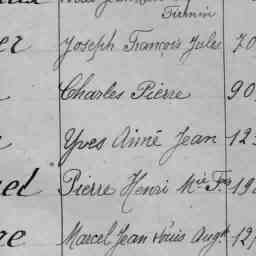 Firmin
er Joseph François Jules 70
Charles Pierre 90
Yves Aimé Jean 123
el Pierre Henri Mie Fçs 19
Marcel Jean Louis Augte 12